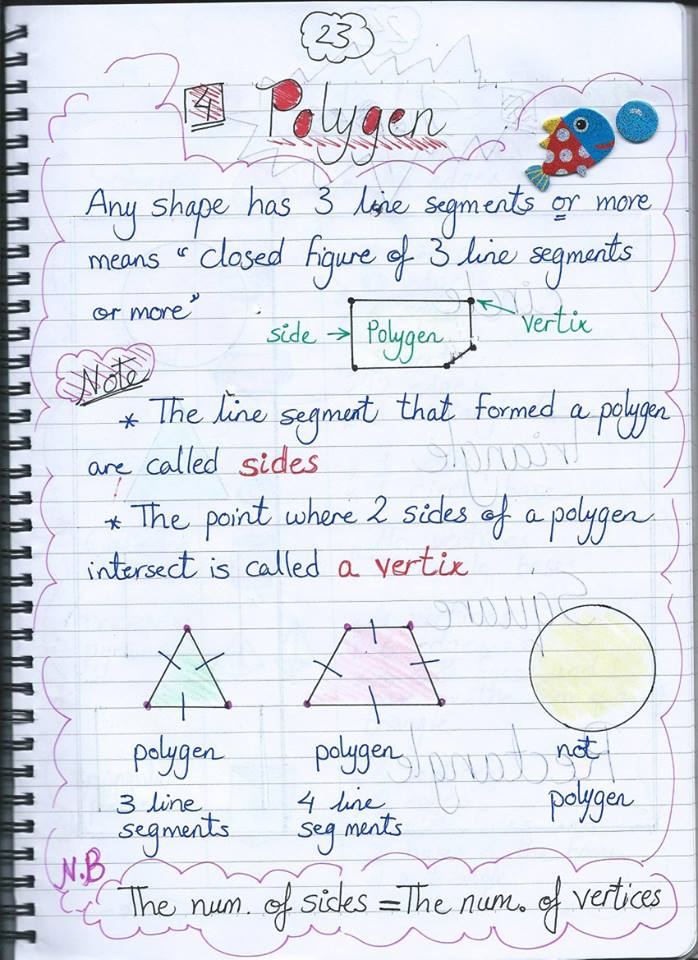 23
4 Polygen
Any shape has 3 line segments or more
means " closed figure of 3 line segments
or more"
side → Polygen ← vertix
Note
* The line segment that formed a polygen
are called sides
* The point where 2 sides of a polygen
intersect is called a vertix
polygen polygen not
polygen
3 line 4 line
segments segments
N.B
The num. of sides = The num. of vertices
circle
Triangle
Square
Rectangle